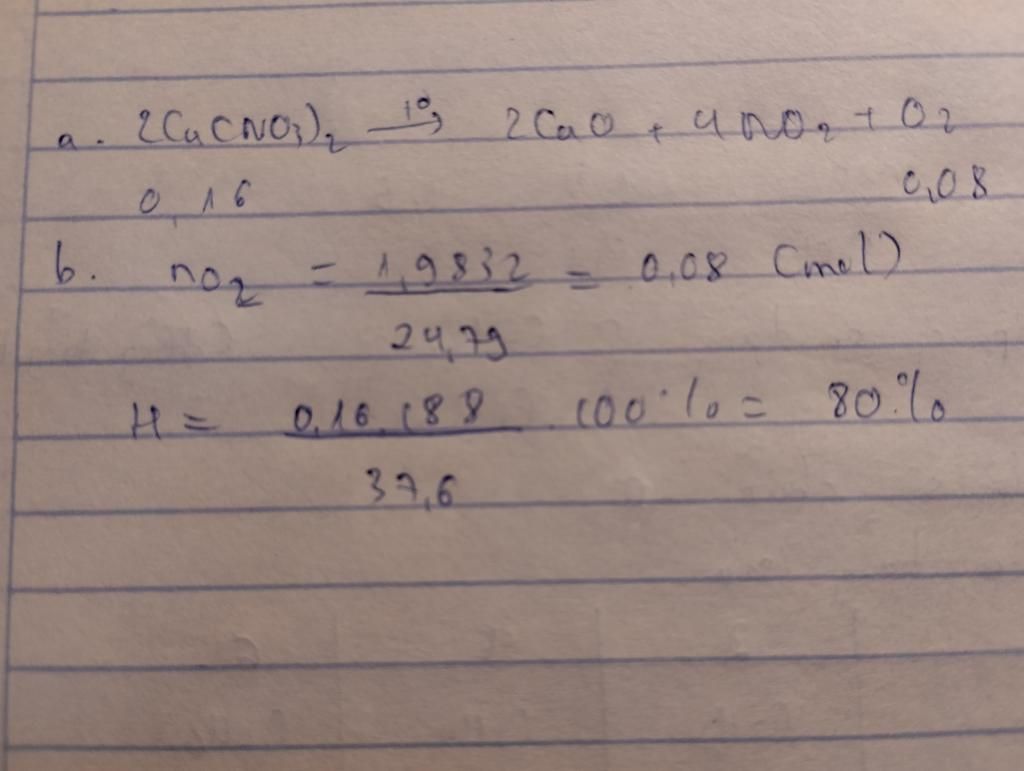 a. 2Cu(NO3)2 —t°→ 2CuO + 4NO2 + O2
0,16 0,08
b. nO2 = 1,9832 / 24,79 = 0,08 (mol)
H = 0,16.188 / 37,6 . 100% = 80%